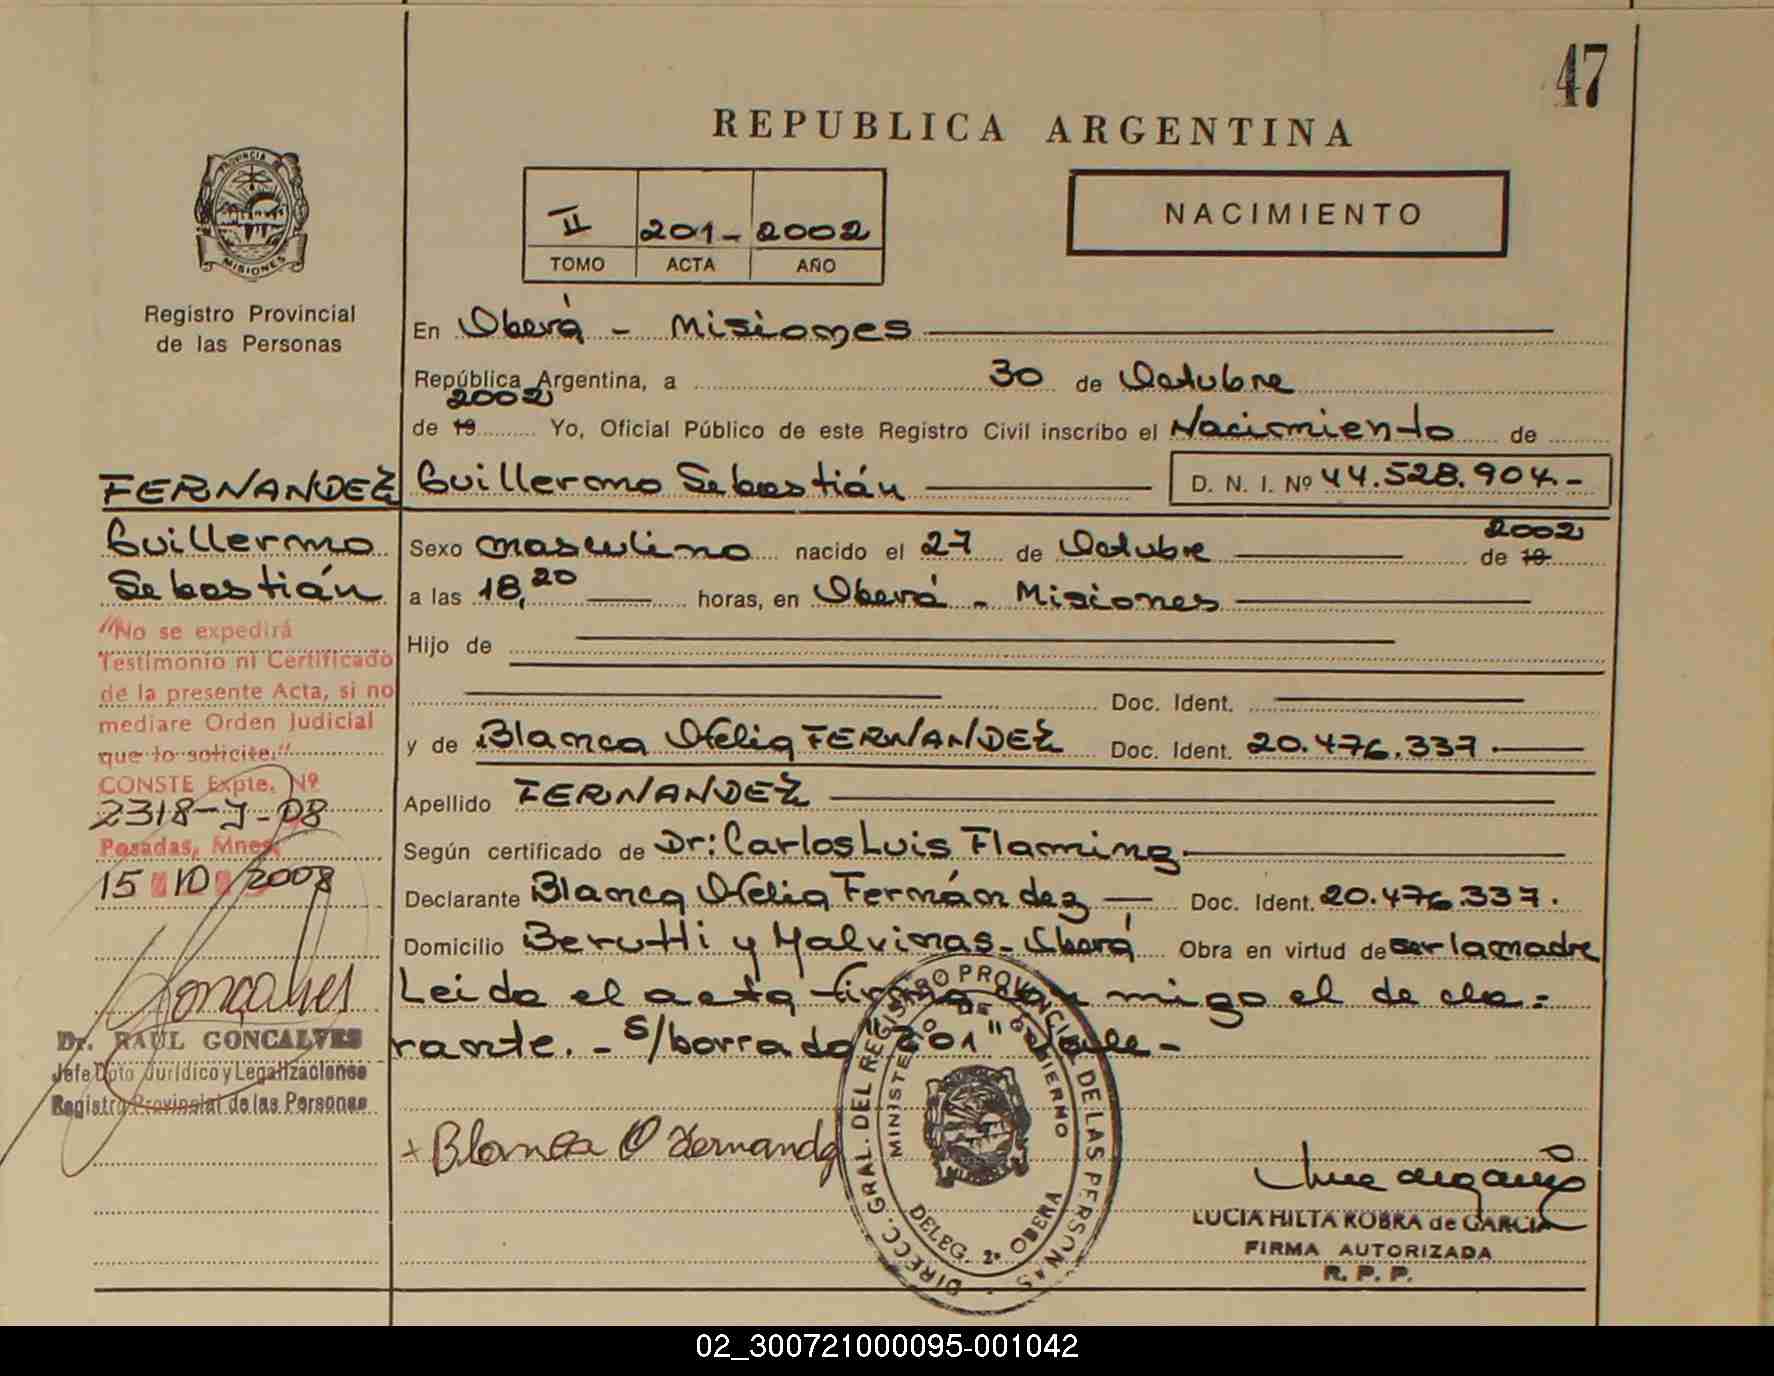 47
REPUBLICA ARGENTINA
PROVINCIA DE
MISIONES
Registro Provincial
de las Personas
II 201- 2002
TOMO ACTA AÑO
NACIMIENTO
En Oberá - Misiones
República Argentina, a 30 de Octubre
2002
de 19 Yo, Oficial Público de este Registro Civil inscribo el Nacimiento de
FERNANDEZ Guillermo Sebastián D. N. I. Nº 44.528.904.-
Guillermo
Sebastián
Sexo masculino nacido el 27 de Octubre de 19 2002
a las 18,20 horas, en Oberá - Misiones
Hijo de
Doc. Ident.
y de Blanca Ofelia FERNANDEZ Doc. Ident. 20.476.337.
Apellido FERNANDEZ
Según certificado de Dr: Carlos Luis Flaming
Declarante Blanca Ofelia Fernández Doc. Ident. 20.476.337.
Domicilio Berutti y Malvinas - Oberá Obra en virtud de ser la madre
Leida el acta firma conmigo el decla-
rante. - S/borrado "201" Vale -
"No se expedirá
Testimonio ni Certificado
de la presente Acta, si no
mediare Orden Judicial
que lo solicite."
CONSTE Expte. Nº
2318-J-08
Posadas, Mnes,
15 10 2008
Goncalves
Dr. RAUL GONCALVES
Jefe Dpto Jurídico y Legalizaciones
Registro Provincial de las Personas
+ Blanca O Fernandez
DIRECC. GRAL. DEL REGISTRO PROVINCIAL DE LAS PERSONAS
MINISTERIO DE GOBIERNO
DELEG. 2ª OBERA
LUCIA HILTA KOBRA de GARCIA
FIRMA AUTORIZADA
R. P. P.
02_300721000095-001042